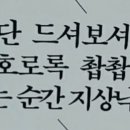 단 드셔보셔
호로록 촵촵
는 순간 지상낙